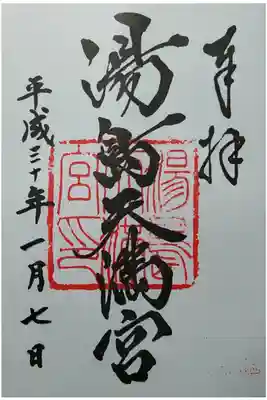 奉拝
湯島天満宮
平成三十年一月七日